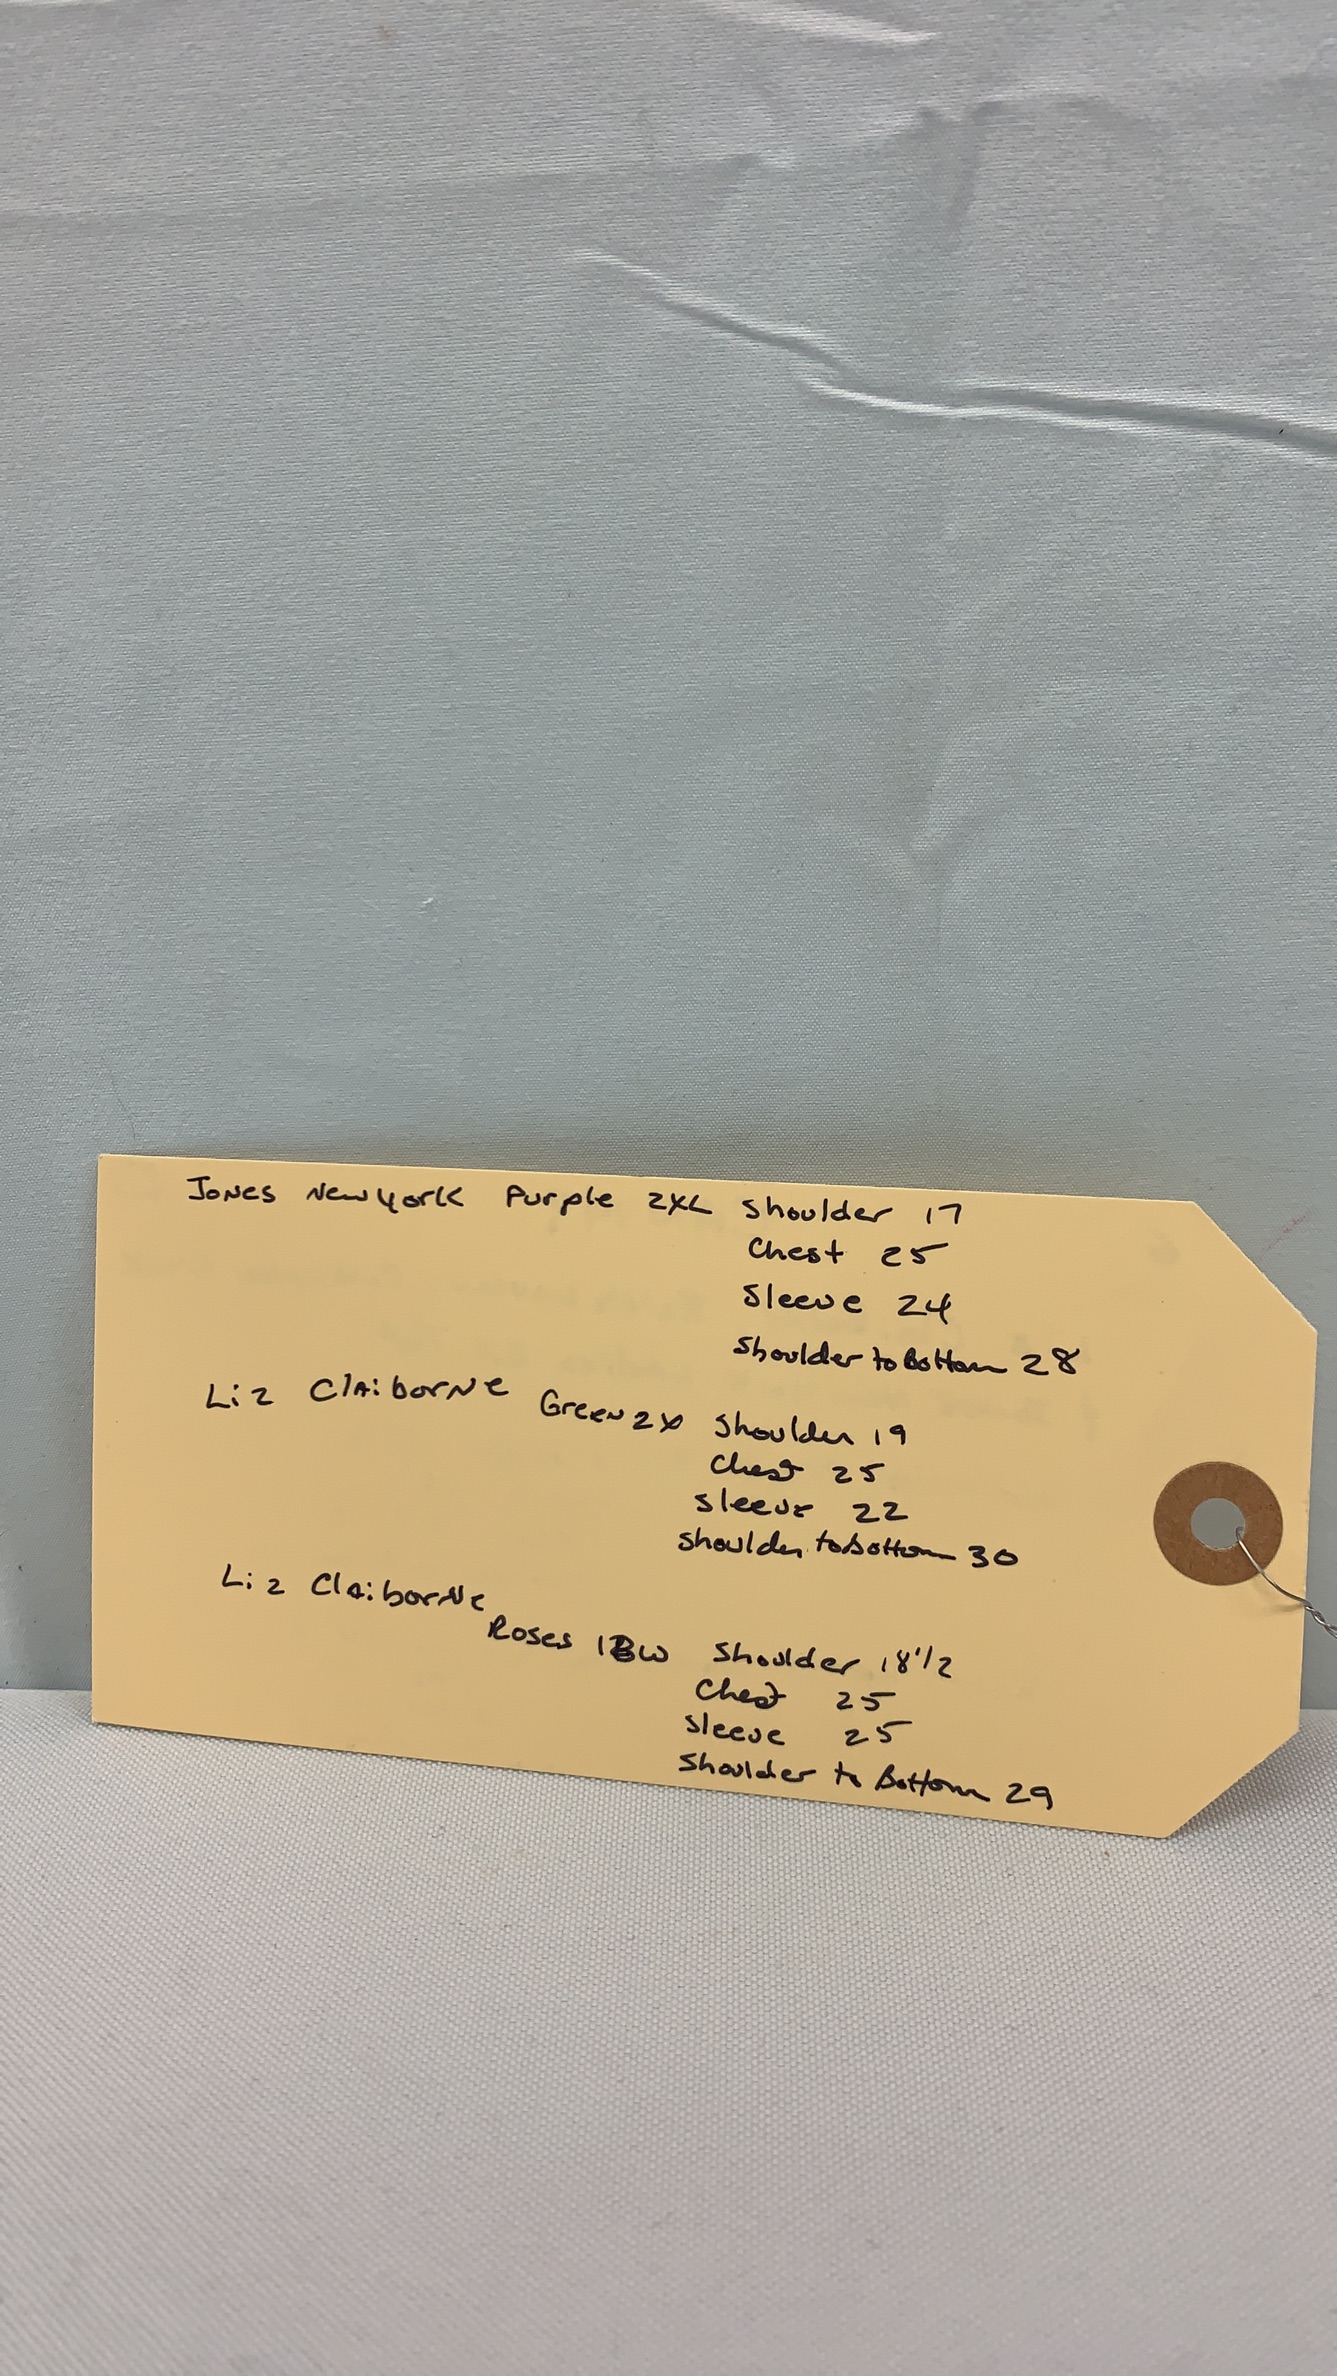 Jones New York Purple 2XL Shoulder 17
Chest 25
Sleeve 24
Shoulder to Bottom 28
Liz Claiborne Green 2X Shoulder 19
Chest 25
Sleeve 22
Shoulder to Bottom 30
Liz Claiborne
Roses 18W Shoulder 18 1/2
Chest 25
Sleeve 25
Shoulder to Bottom 29